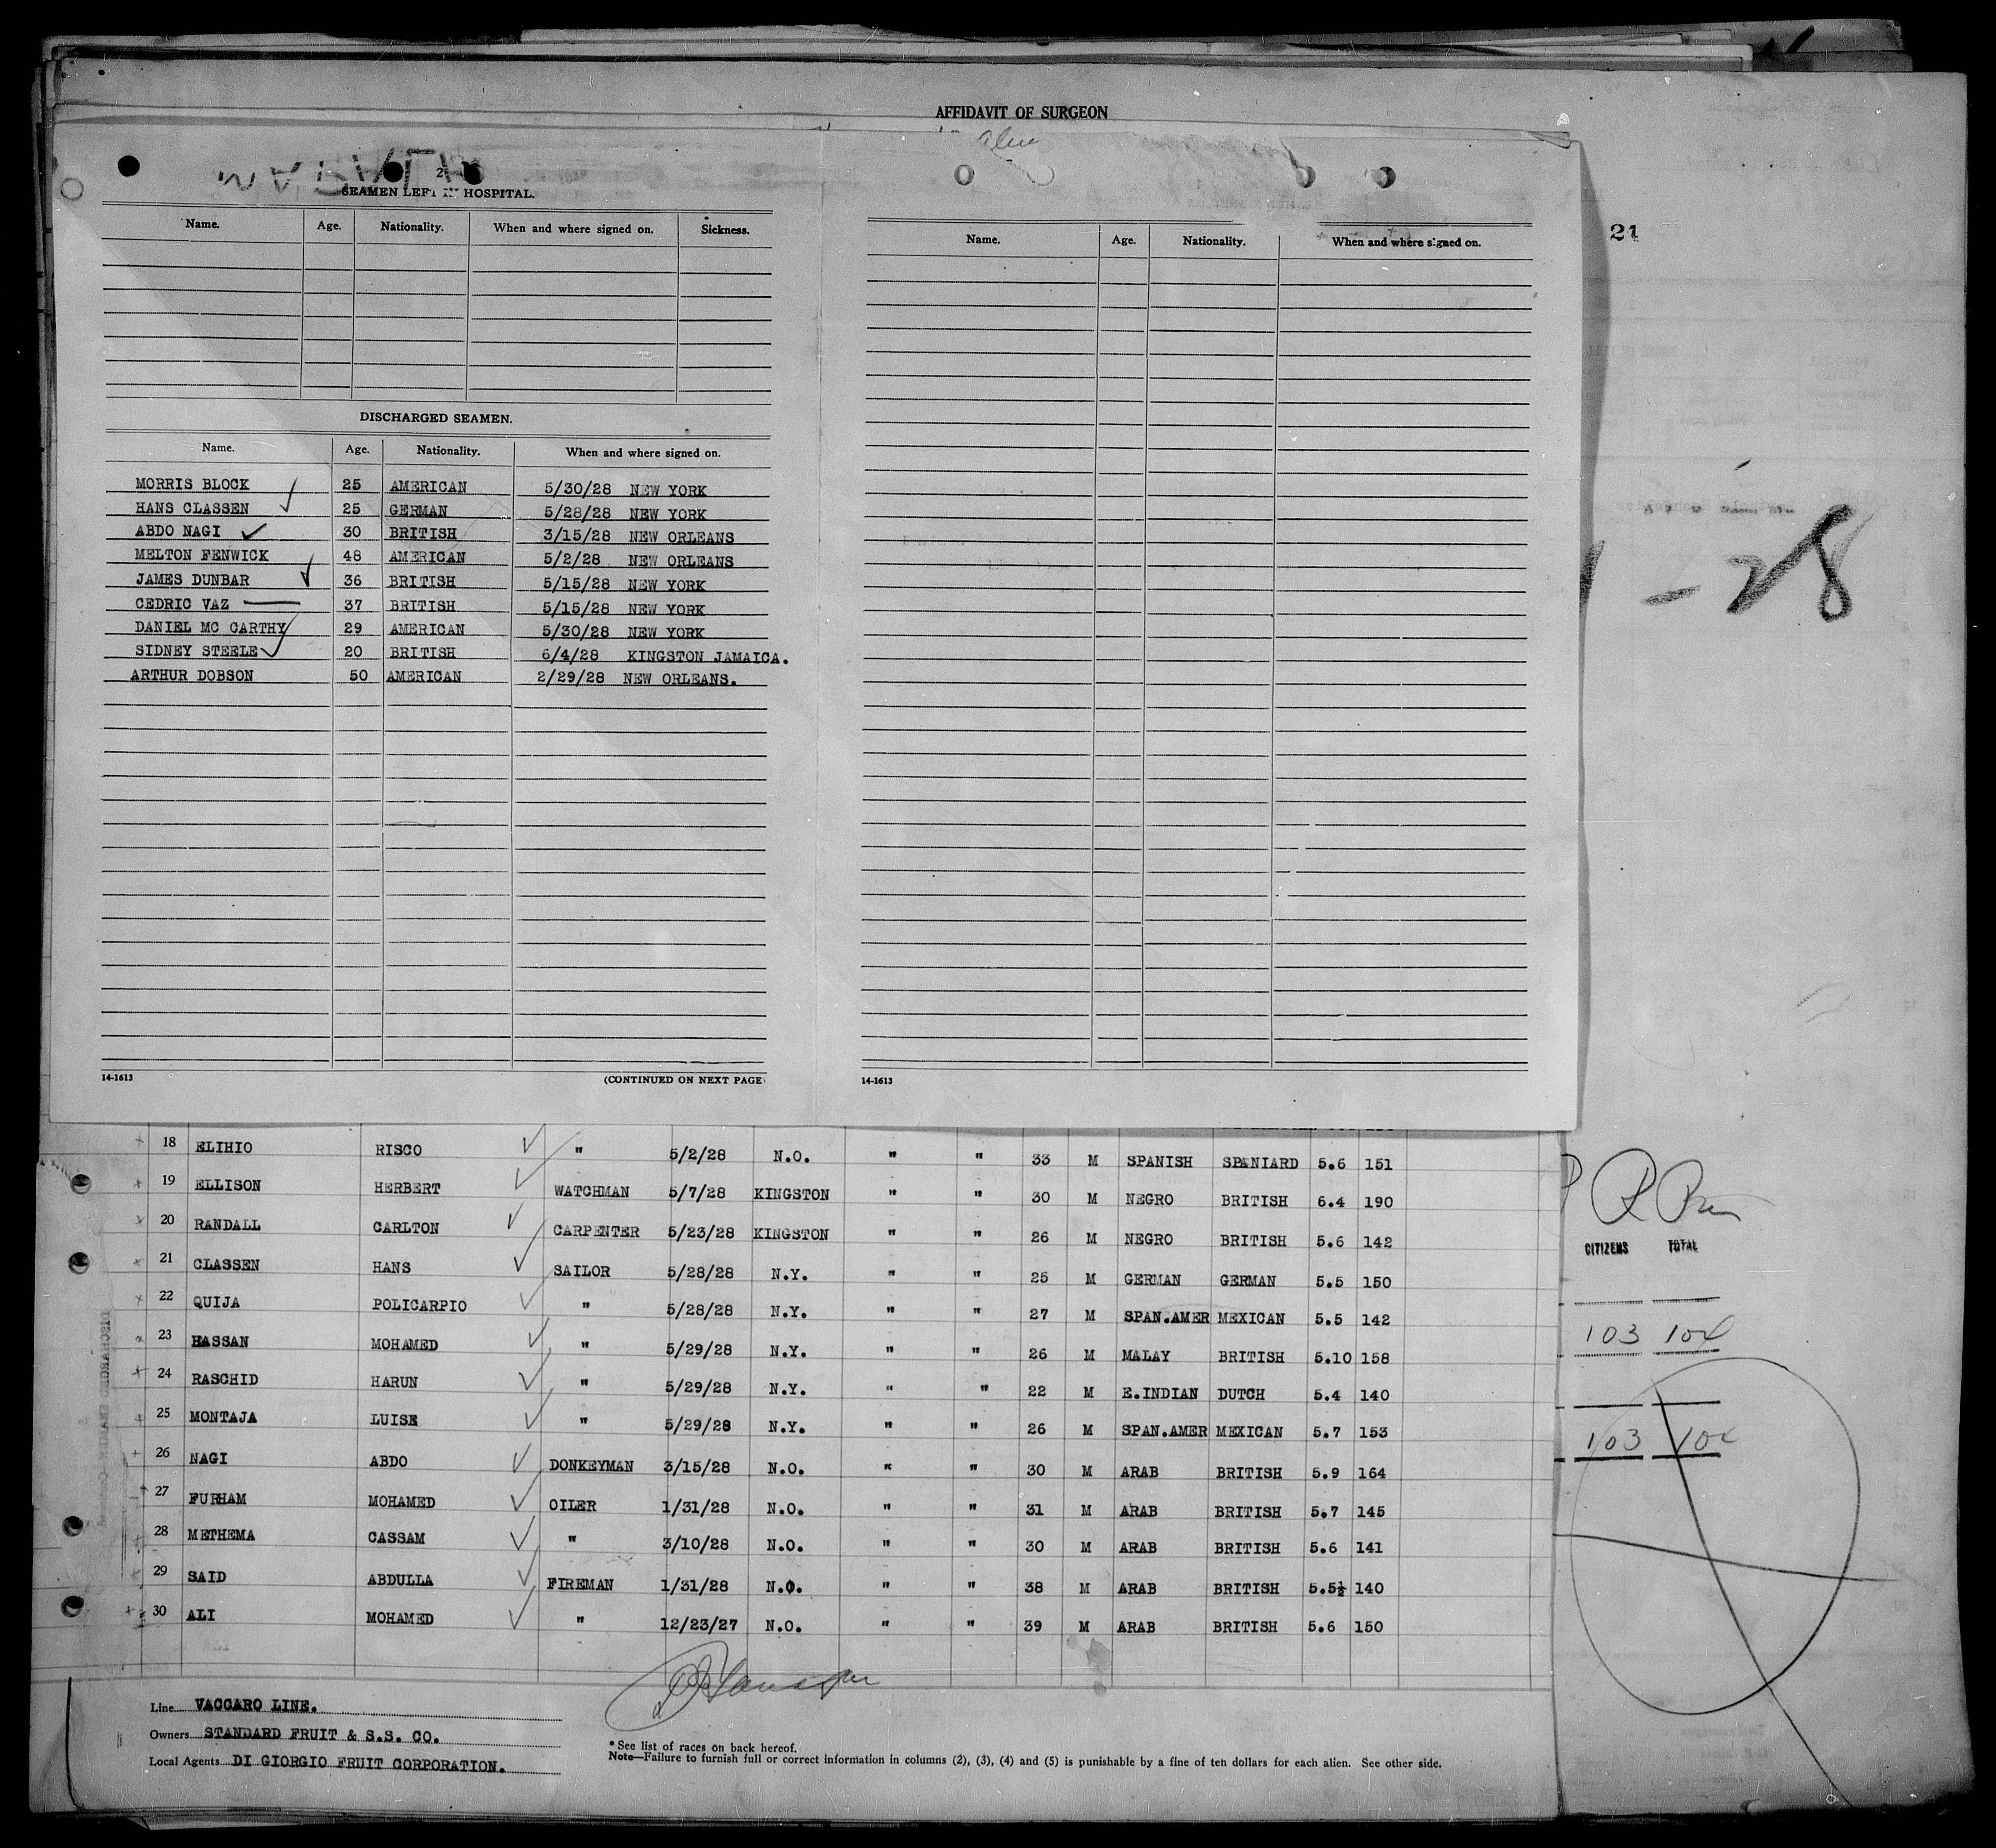 AFFIDAVIT OF SURGEON
2
SEAMEN LEFT IN HOSPITAL.
Name. Age. Nationality. When and where signed on. Sickness.
DISCHARGED SEAMEN.
Name. Age. Nationality. When and where signed on.
MORRIS BLOCK 25 AMERICAN 5/30/28 NEW YORK
HANS CLASSEN 25 GERMAN 5/28/28 NEW YORK
ABDO NAGI 30 BRITISH 3/15/28 NEW ORLEANS
MELTON FENWICK 48 AMERICAN 5/2/28 NEW ORLEANS
JAMES DUNBAR 36 BRITISH 5/15/28 NEW YORK
CEDRIC VAZ 37 BRITISH 5/15/28 NEW YORK
DANIEL MC CARTHY 29 AMERICAN 5/30/28 NEW YORK
SIDNEY STEELE 20 BRITISH 6/4/28 KINGSTON JAMAICA.
ARTHUR DOBSON 50 AMERICAN 2/29/28 NEW ORLEANS.
14-1613 (CONTINUED ON NEXT PAGE)
Name. Age. Nationality. When and where signed on.
14-1613
21
- 28
18 ELIHIO RISCO " 5/2/28 N.O. " " 33 M SPANISH SPANIARD 5.6 151
19 ELLISON HERBERT WATCHMAN 5/7/28 KINGSTON " " 30 M NEGRO BRITISH 6.4 190
20 RANDALL CARLTON CARPENTER 5/23/28 KINGSTON " " 26 M NEGRO BRITISH 5.6 142
21 CLASSEN HANS SAILOR 5/28/28 N.Y. " " 25 M GERMAN GERMAN 5.5 150
22 QUIJA POLICARPIO " 5/28/28 N.Y. " " 27 M SPAN.AMER MEXICAN 5.5 142
23 HASSAN MOHAMED " 5/29/28 N.Y. " " 26 M MALAY BRITISH 5.10 158
24 RASCHID HARUN " 5/29/28 N.Y. " " 22 M E.INDIAN DUTCH 5.4 140
25 MONTAJA LUISE " 5/29/28 N.Y. " " 26 M SPAN.AMER MEXICAN 5.7 153
26 NAGI ABDO DONKEYMAN 3/15/28 N.O. " " 30 M ARAB BRITISH 5.9 164
27 FURHAM MOHAMED OILER 1/31/28 N.O. " " 31 M ARAB BRITISH 5.7 145
28 METHEMA CASSAM " 3/10/28 N.O. " " 30 M ARAB BRITISH 5.6 141
29 SAID ABDULLA FIREMAN 1/31/28 N.O. " " 38 M ARAB BRITISH 5.5½ 140
30 ALI MOHAMED " 12/23/27 N.O. " " 39 M ARAB BRITISH 5.6 150
Line VACCARO LINE.
Owners STANDARD FRUIT & S.S. CO.
Local Agents DI GIORGIO FRUIT CORPORATION.
* See list of races on back hereof.
Note—Failure to furnish full or correct information in columns (2), (3), (4) and (5) is punishable by a fine of ten dollars for each alien. See other side.
CITIZENS TOTAL
103 104
103 104